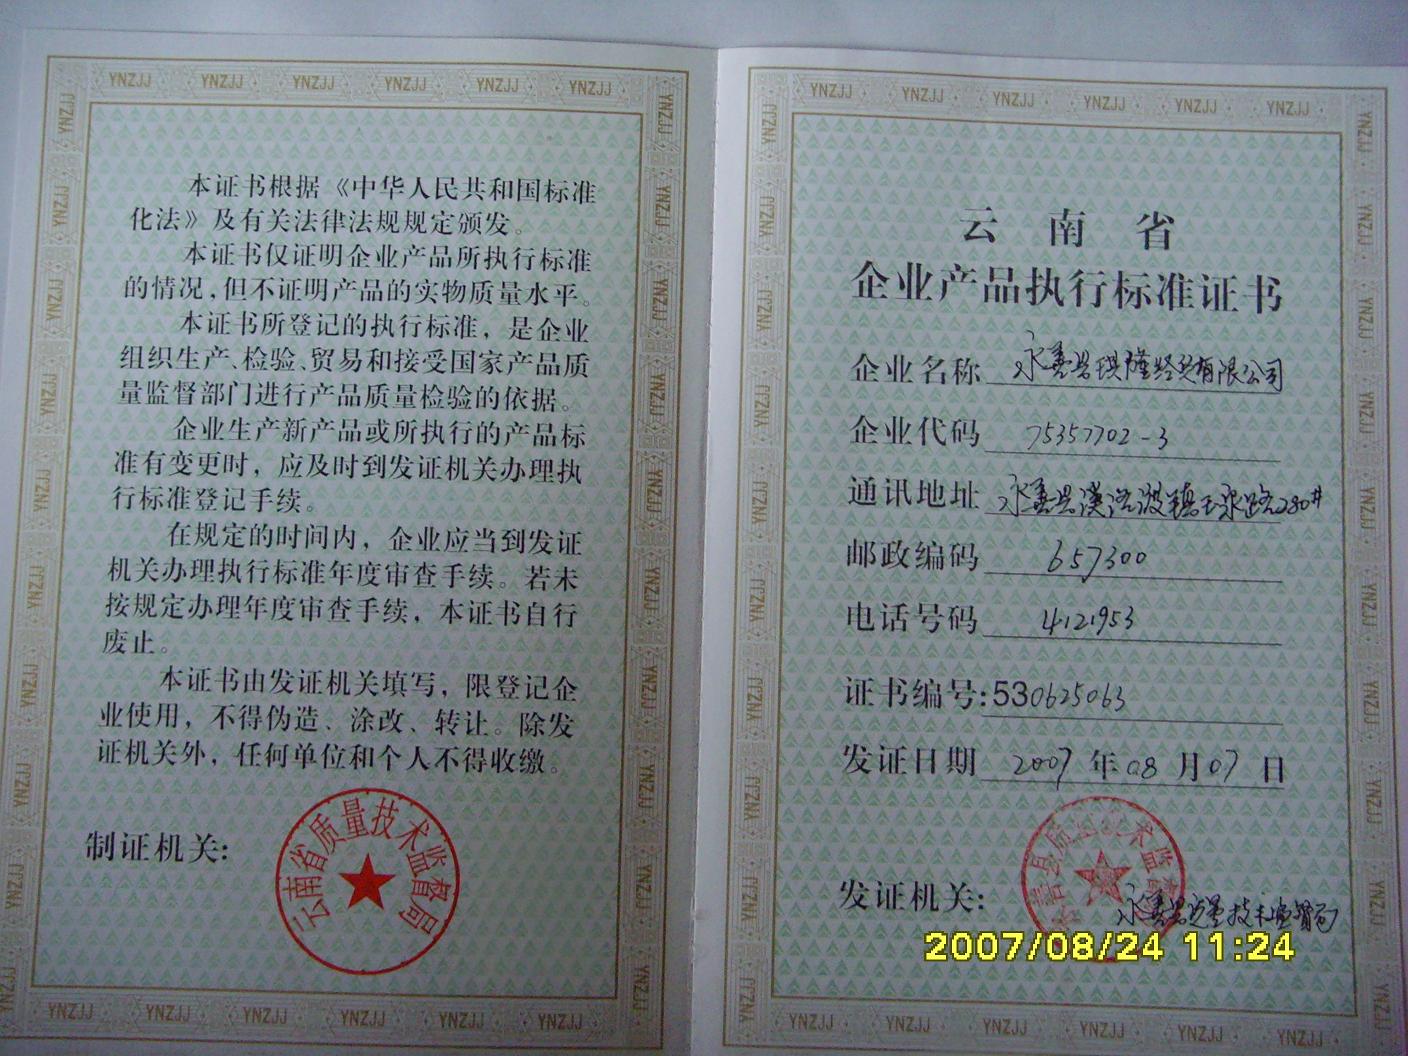 本证书根据《中华人民共和国标准
化法》及有关法律法规规定颁发。
本证书仅证明企业产品所执行标准
的情况,但不证明产品的实物质量水平。
本证书所登记的执行标准，是企业
组织生产、检验、贸易和接受国家产品质
量监督部门进行产品质量检验的依据。
企业生产新产品或所执行的产品标
准有变更时，应及时到发证机关办理执
行标准登记手续。
在规定的时间内，企业应当到发证
机关办理执行标准年度审查手续。若未
按规定办理年度审查手续，本证书自行
废止。
本证书由发证机关填写，限登记企
业使用，不得伪造、涂改、转让。除发
证机关外，任何单位和个人不得收缴。
制证机关:
云南省质量技术监督局
云南省
企业产品执行标准证书
企业名称 永善县琪隆经贸有限公司
企业代码 75357702-3
通讯地址 永善县溪洛渡镇玉泉路280#
邮政编码 657300
电话号码 4121953
证书编号:530625063
发证日期 2007年08月07日
发证机关: 永善县质量技术监督局
2007/08/24 11:24
YNZJJ